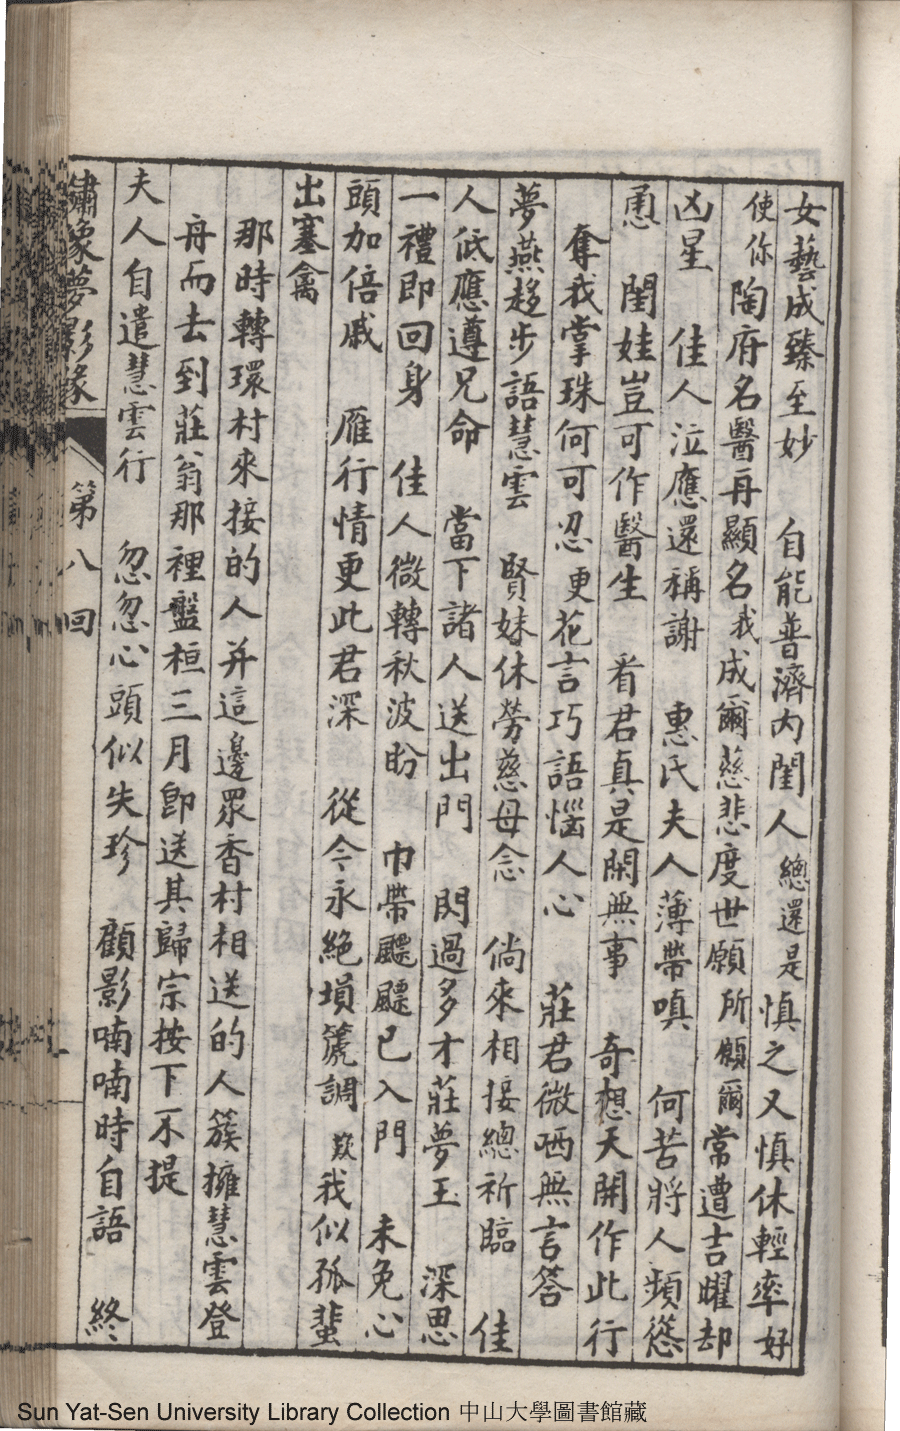 女藝成臻至妙　自能普濟內閨人　總還是慎之又慎休輕率好
使你陶府名醫再顯名　我成爾慈悲度世願　所願爾常遭吉曜却
凶星　佳人泣應還稱謝　惠氏夫人薄帶嗔　何苦將人頻慫
恿　閨娃豈可作醫生　看君真是閑無事　奇想天開作此行
奪我掌珠何可忍　更花言巧語惱人心　莊君微哂無言答
夢燕趍步語慧雲　賢妹休勞慈母念　倘來相接總祈臨　佳
人低應遵兄命　當下諸人送出門　閃過多才莊夢玉　深思
一禮即回身　佳人微轉秋波盼　巾帶飀飀已入門　未免心
頭加倍戚　雁行情更此君深　從今永絕塤篪調　歎我似孤蜚
出塞禽
那時轉環村來接的人并這邊眾香村相送的人簇擁慧雲登
舟而去到莊翁那裡盤桓三月即送其歸宗按下不提
夫人自遣慧雲行　忽忽心頭似失珍　顧影喃喃時自語　終
繡像夢影緣　第八回
Sun Yat-Sen University Library Collection 中山大學圖書館藏